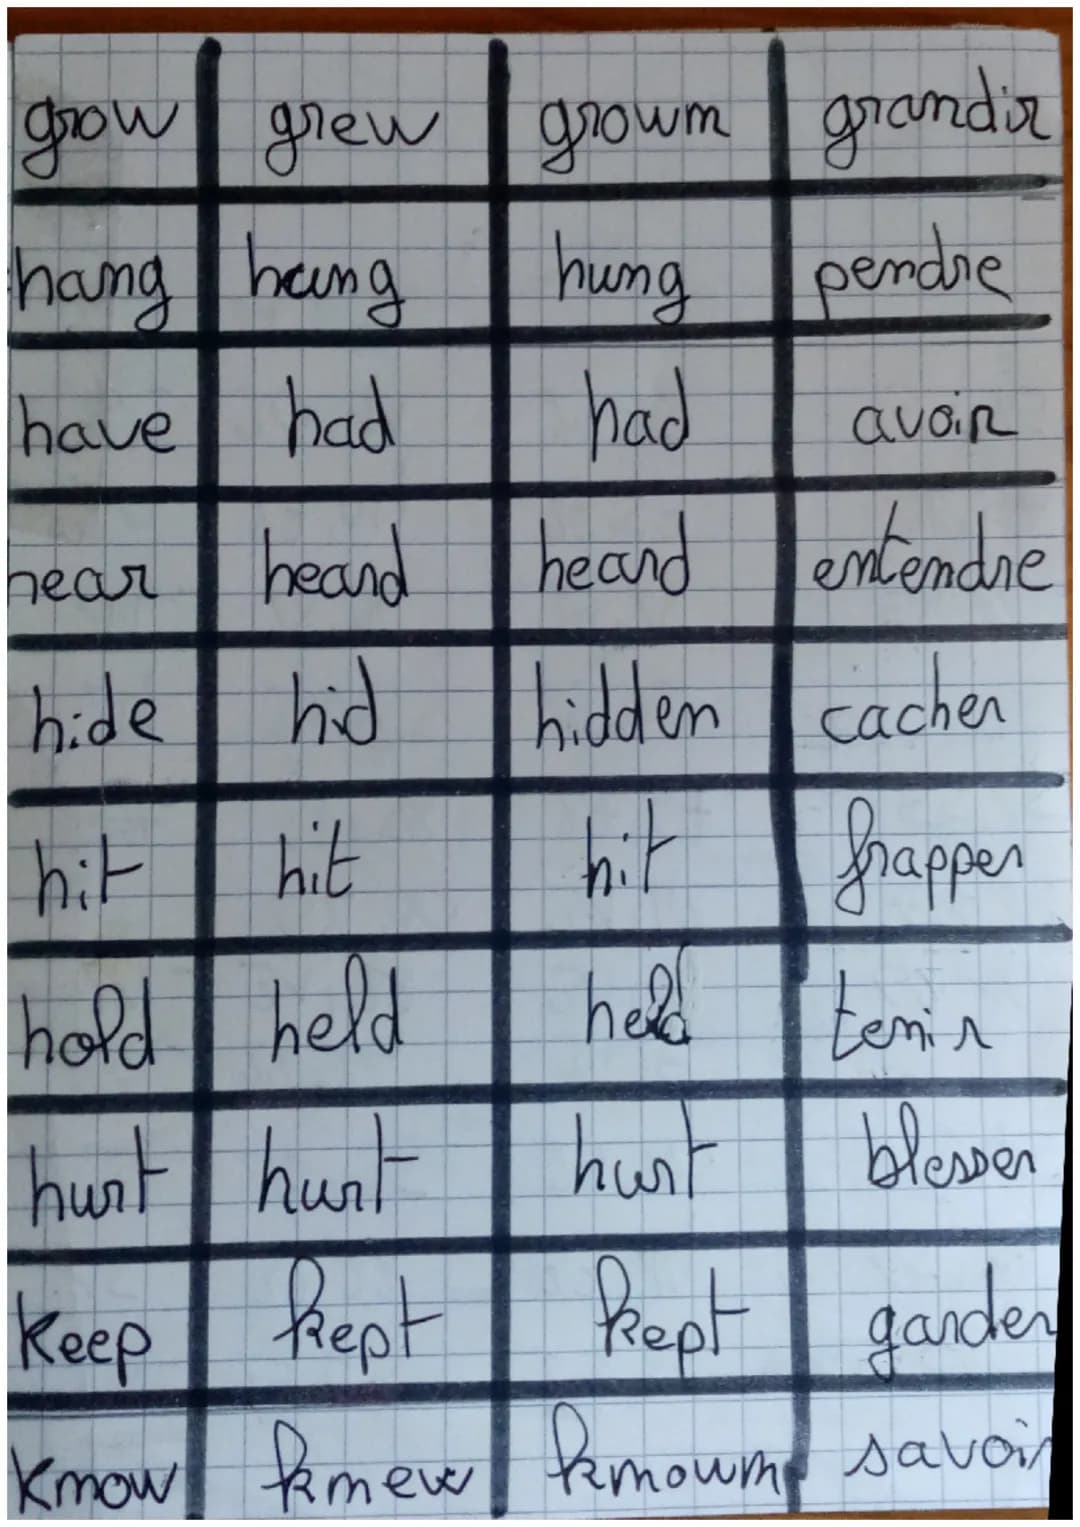 grow grew grown grandir
hang hang hung pendre
have had had avoir
hear heard heard entendre
hide hid hidden cacher
hit hit hit frapper
hold held held tenir
hurt hurt hurt blesser
keep kept kept garder
know knew known savoir